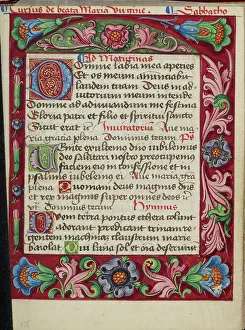 Cursus de beata Maria Virgine. Sabbatho
Ad Matutinas
Domine labia mea aperies
Et os meum annunciabit
laudem tuam Deus in ad
iutorium meum intende
Domine ad adiuvandum me festina
Gloria patri et filio et spiritui sancto
Sicut erat Invitatorium Ave Ma
ria gratia plena Dominus tecum Ps
Venite exultemus dno iubilemus
deo salutari nostro preocupemus
faciem eius in confessione et in
psalmis iubilemus ei Ave maria gra
plena Quoniam deus magnus dns
et rex magnus super omnes deos
Dominus tecum Hymnus
Quem terra pontus ethera colunt
adorant predicant trinam re
gentem machinam claustrum marie
baiolat Cui luna sol et omnia deserviunt